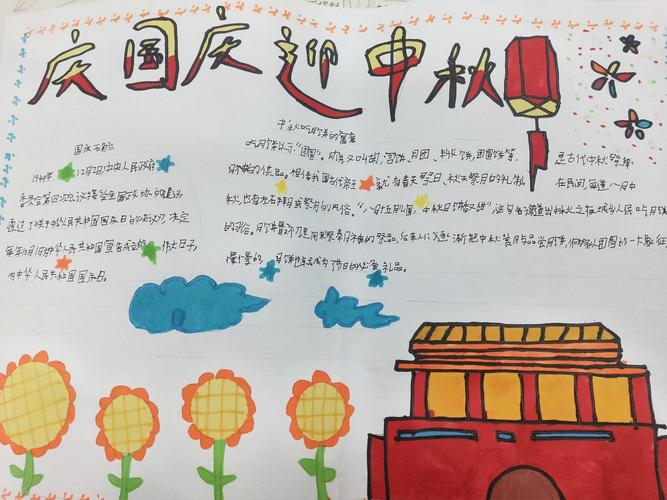 庆国庆迎中秋
国庆
1949年12月2日中央人民政府
委员会第四次会议接受全国政协的建议
通过了《关于中华人民共和国国庆日的决议》,决定
每年10月1日即中华人民共和国宣告成立的伟大日子,
为中华人民共和国国庆日。
中秋吃月饼的寓意
吃月饼以示“团圆”。月饼又叫胡饼、宫饼、月团、丰收饼、团圆饼等,是古代中秋祭拜
月神的供品。相传我国古代帝王就有春天祭日、秋天祭月的礼制。在民间,每逢八月中
秋,也有左右拜月或祭月的风俗。“八月十五月儿圆,中秋月饼香又甜”,这句名谚道出中秋之夜城乡人民吃月饼
的习俗。月饼最初是用来祭奉月神的祭品,后来人们逐渐把中秋赏月与品尝月饼,作为家人团圆的一大象征
慢慢的,月饼也就成为了节日的必备礼品。